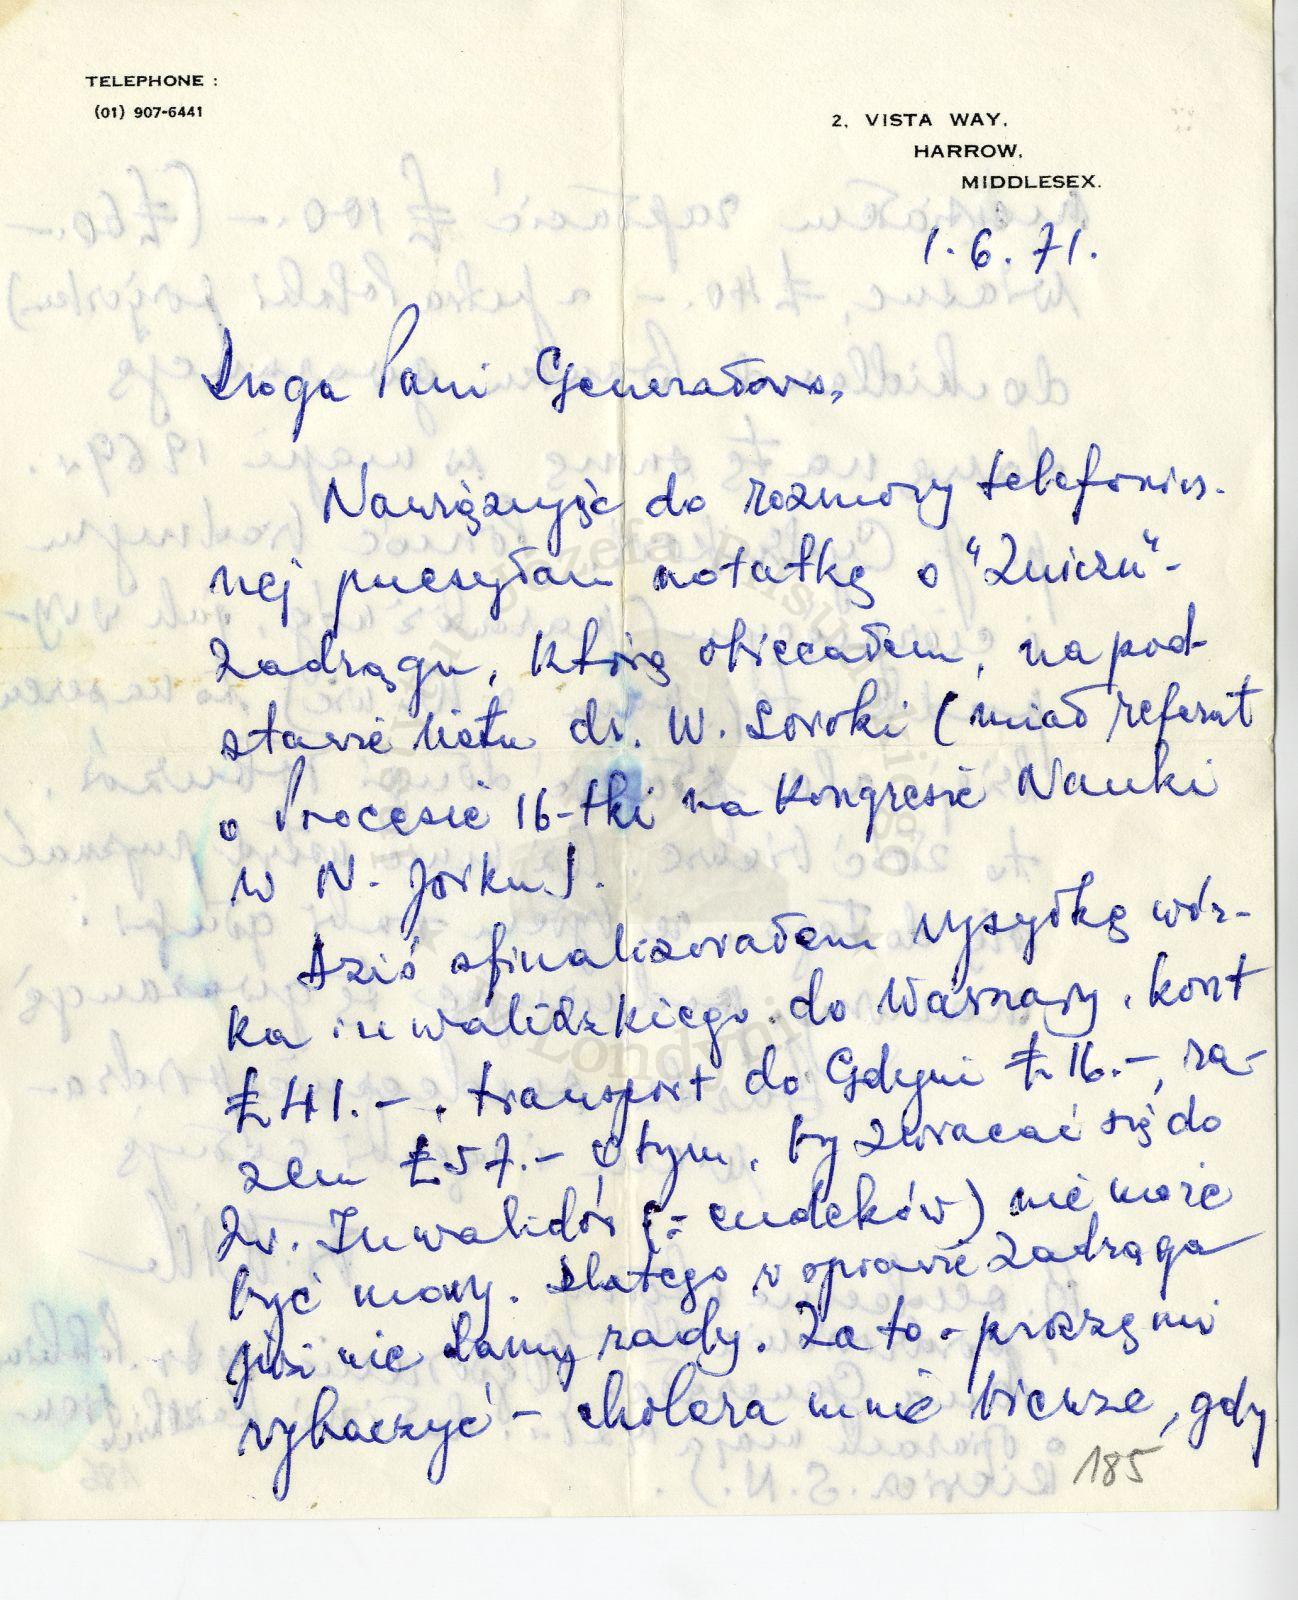 TELEPHONE :
(01) 907-6441
2, VISTA WAY,
HARROW,
MIDDLESEX.
1. 6. 71.
Droga Pani Generałowo,
Nawiązując do rozmowy telefonicz-
nej przesyłam notatkę o "Zniczu"-
Zadrągu, którą obiecałem, na pod-
stawie listu dr. W. Soroki (miał referat
o Procesie 16-tki na Kongresie Nauki
w N. Jorku).
Dziś sfinalizowałem wysyłkę wóz-
ka inwalidzkiego do Warszawy, koszt
£41.-, transport do Gdyni £16.-, ra-
zem £57.- o tym, by zwracać się do
Zw. Inwalidów (= endeków) nie może
być mowy. Dlatego w sprawie Zadrąga
już nie damy rady. Za to - proszę mi
wybaczyć - cholera mnie bierze, gdy
185